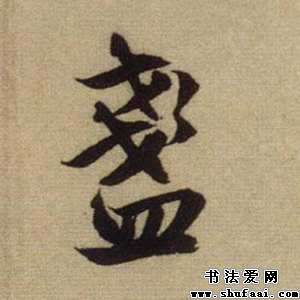 盞
书法爱网
www.shufaai.com